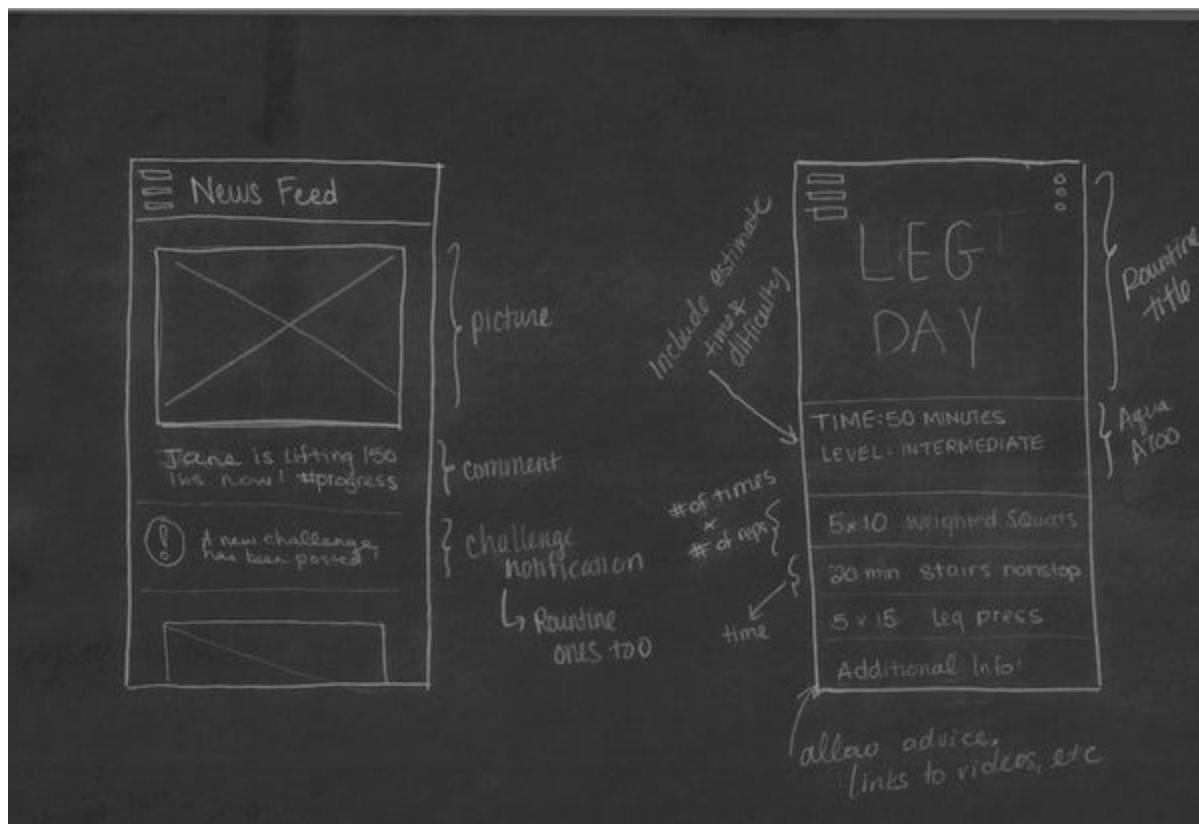 News Feed
picture
Jane is lifting 150
lbs now! #progress
comment
! A new challenge
has been posted!
challenge
notification
Rountine
ones too
LEG
DAY
Rountine
title
Include estimate
time &
difficulty
TIME: 50 MINUTES
LEVEL: INTERMEDIATE
Aqua
A700
# of times
# of reps
5x10 Weighted Squats
20 min Stairs nonstop
time
5 x 15 Leg press
Additional Info:
allow advice,
links to videos, etc